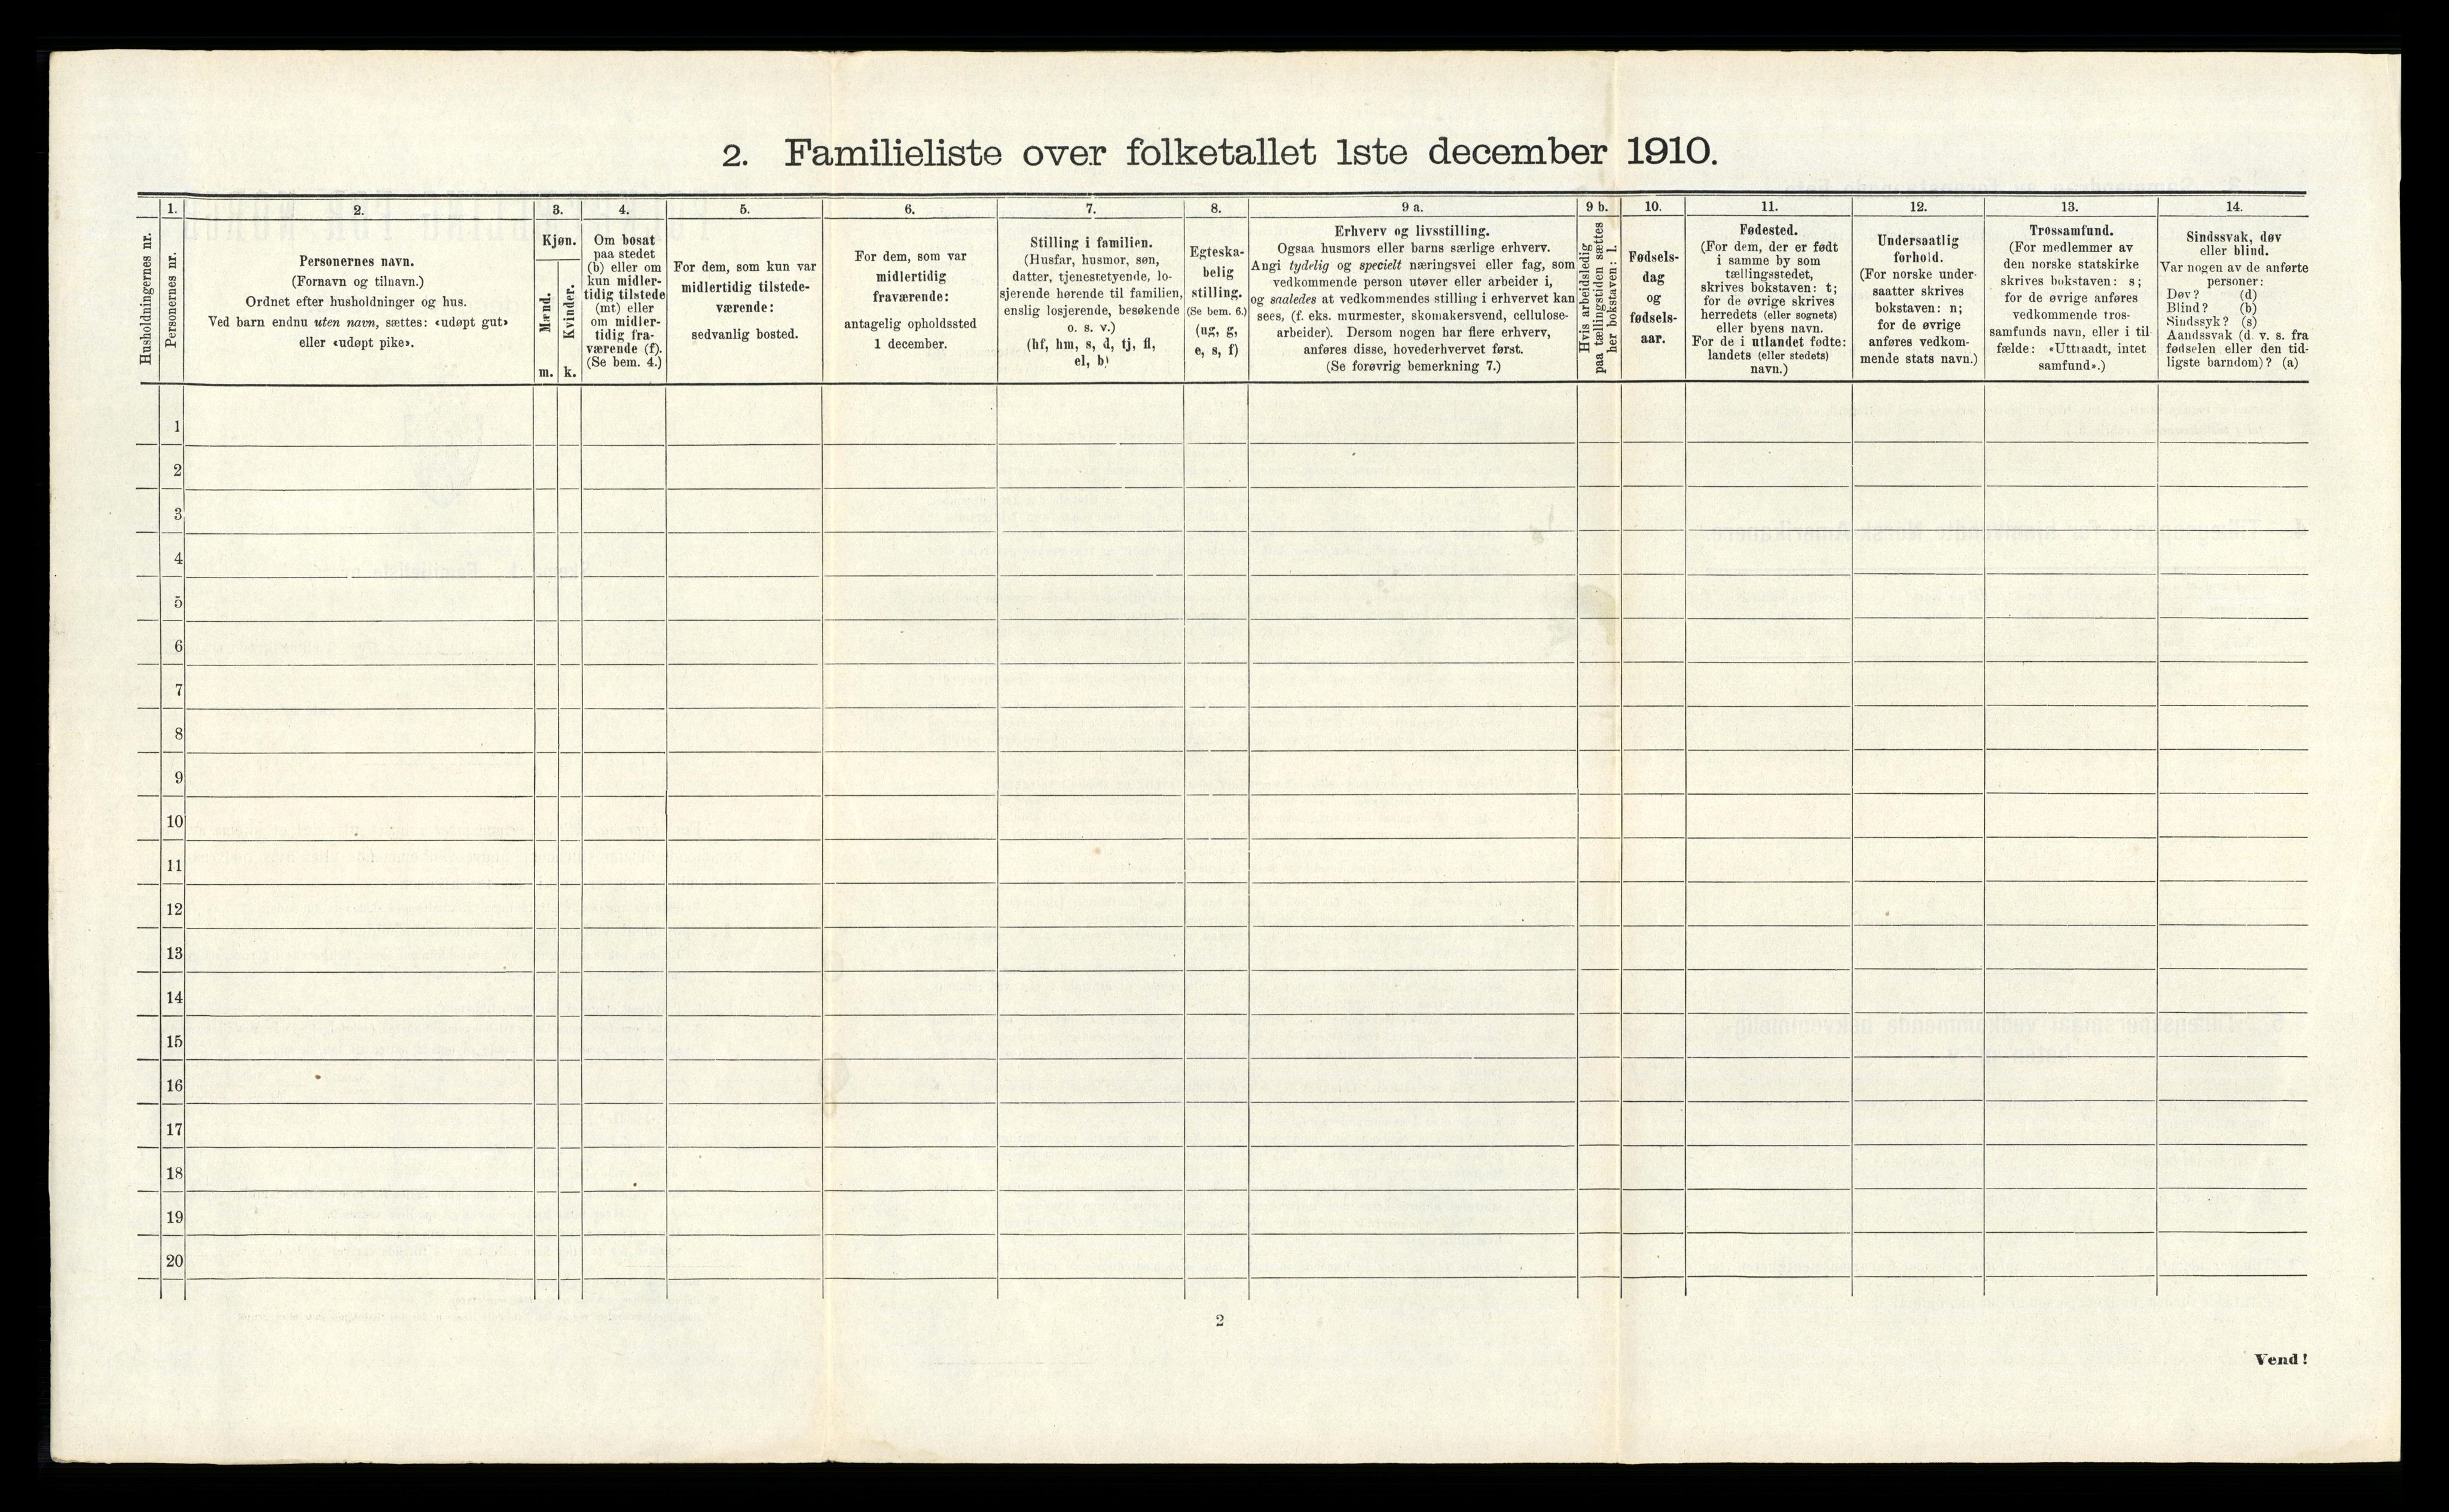 2. Familieliste over folketallet 1ste december 1910.
Husholdningernes nr.
1.
Personernes nr.
2.
Personernes navn.
(Fornavn og tilnavn.)
Ordnet efter husholdninger og hus.
Ved barn endnu uten navn, sættes: «udøpt gut»
eller «udøpt pike».
3.
Kjøn.
Mænd.
m.
Kvinder.
k.
4.
Om bosat
paa stedet
(b) eller om
kun midler-
tidig tilstede
(mt) eller
om midler-
tidig fra-
værende (f).
(Se bem. 4.)
5.
For dem, som kun var
midlertidig tilstede-
værende:
sedvanlig bosted.
6.
For dem, som var
midlertidig
fraværende:
antagelig opholdssted
1 december.
7.
Stilling i familien.
(Husfar, husmor, søn,
datter, tjenestetyende, lo-
sjerende hørende til familien,
enslig losjerende, besøkende
o. s. v.)
(hf, hm, s, d, tj, fl,
el, b)
8.
Egteska-
belig
stilling.
(Se bem. 6.)
(ug, g,
e, s, f)
9 a.
Erhverv og livsstilling.
Ogsaa husmors eller barns særlige erhverv.
Angi tydelig og specielt næringsvei eller fag, som
vedkommende person utøver eller arbeider i,
og saaledes at vedkommendes stilling i erhvervet kan
sees, (f. eks. murmester, skomakersvend, cellulose-
arbeider). Dersom nogen har flere erhverv,
anføres disse, hovederhvervet først.
(Se forøvrig bemerkning 7.)
9 b.
Hvis arbeidsledig
paa tællingstiden sættes
her bokstaven: l.
10.
Fødsels-
dag
og
fødsels-
aar.
11.
Fødested.
(For dem, der er født
i samme by som
tællingsstedet,
skrives bokstaven: t;
for de øvrige skrives
herredets (eller sognets)
eller byens navn.
For de i utlandet fødte:
landets (eller stedets)
navn.)
12.
Undersaatlig
forhold.
(For norske under-
saatter skrives
bokstaven: n;
for de øvrige
anføres vedkom-
mende stats navn.)
13.
Trossamfund.
(For medlemmer av
den norske statskirke
skrives bokstaven: s;
for de øvrige anføres
vedkommende tros-
samfunds navn, eller i til-
fælde: «Uttraadt, intet
samfund».)
14.
Sindssvak, døv
eller blind.
Var nogen av de anførte
personer:
Døv? (d)
Blind? (b)
Sindssyk? (s)
Aandssvak (d. v. s. fra
fødselen eller den tid-
ligste barndom)? (a)
1
2
3
4
5
6
7
8
9
10
11
12
13
14
15
16
17
18
19
20
2
Vend!